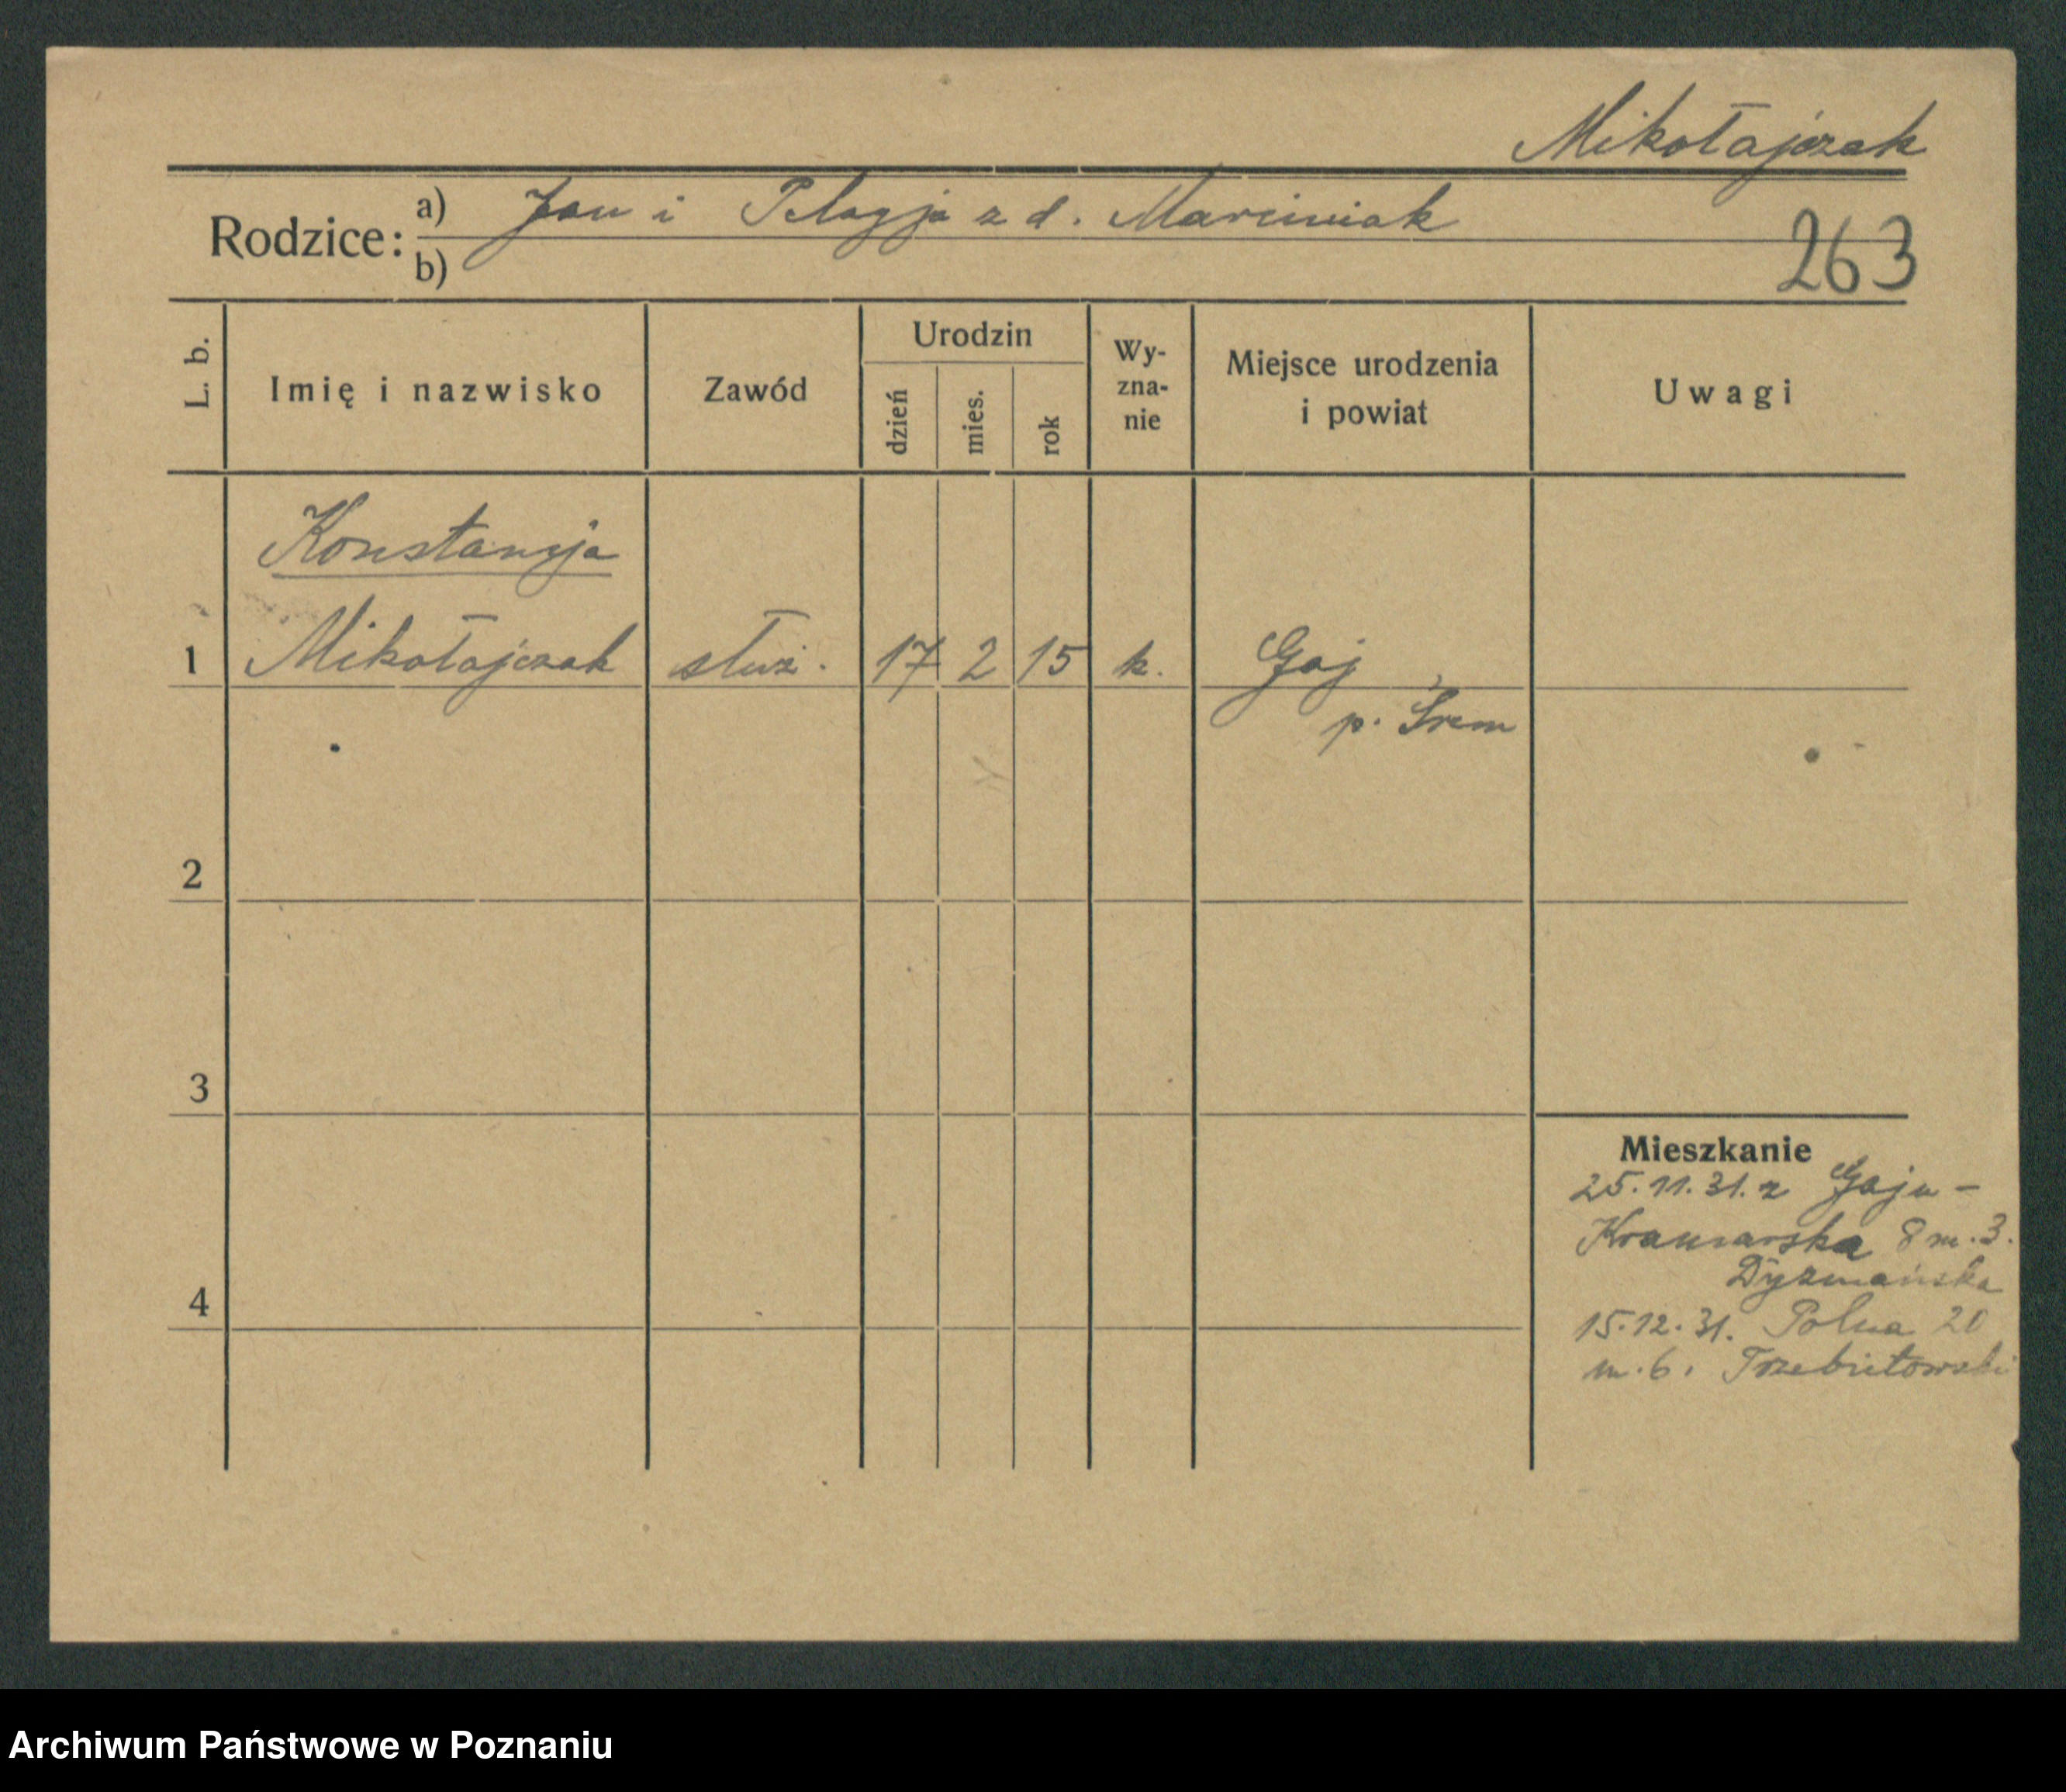 Mikołajczak
Rodzice: a) Jan i Pelagja z d. Marciniak
b)
263
L. b.
Imię i nazwisko
Zawód
Urodzin
dzień
mies.
rok
Wy-
zna-
nie
Miejsce urodzenia
i powiat
Uwagi
Konstancja
1 Mikołajczak służ. 17 2 15 k. Gaj
p. Śrem
2
3
4
Mieszkanie
25.11.31. z Gaju -
Kramarska 8 m. 3.
Dyzmańska
15.12.31. Polna 20
m. 6. Trzebiatowski
Archiwum Państwowe w Poznaniu